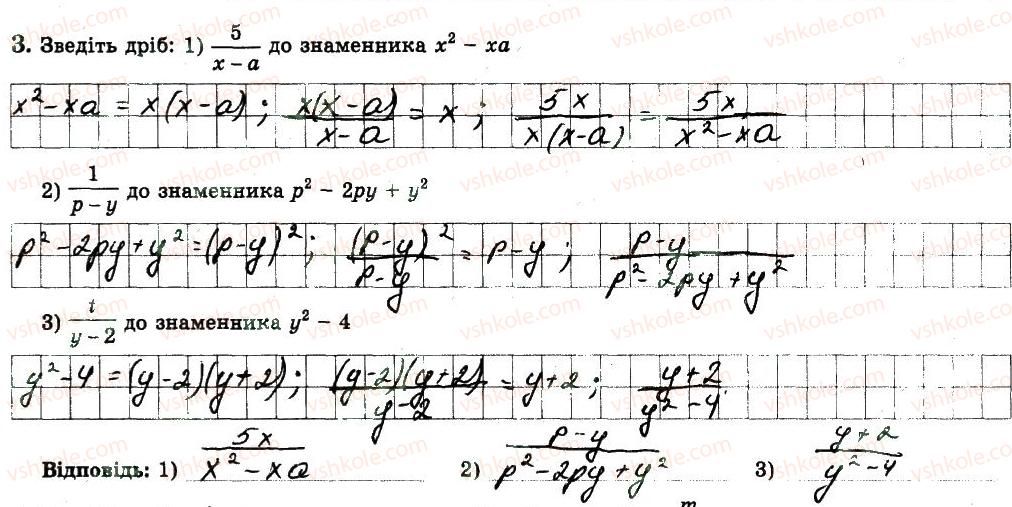 3. Зведіть дріб: 1) 5/(x – a) до знаменника x² – xa
x² – xa = x(x – a); x(x – a)/(x – a) = x; 5x/(x(x – a)) = 5x/(x² – xa)
2) 1/(p – y) до знаменника p² – 2py + y²
p² – 2py + y² = (p – y)²; (p – y)²/(p – y) = p – y; (p – y)/(p² – 2py + y²)
3) t/(y – 2) до знаменника y² – 4
y² – 4 = (y – 2)(y + 2); (y – 2)(y + 2)/(y – 2) = y + 2; (y + 2)/(y² – 4)
Відповідь: 1) 5x/(x² – xa) 2) (p – y)/(p² – 2py + y²) 3) (y + 2)/(y² – 4)
m
vshkole.com